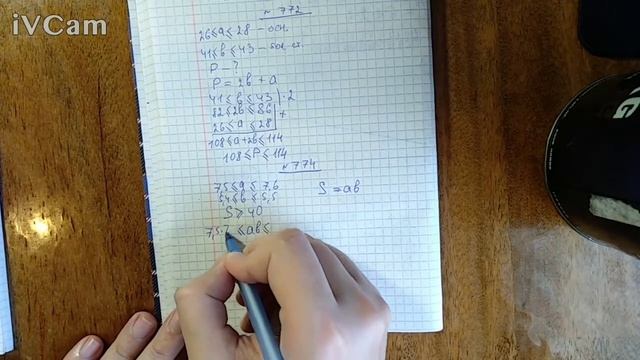 iVCam
№ 772
26≤a≤28 – осн.
41≤b≤43 – бок. ст.
P – ?
P = 2b + a
41≤b≤43 | ·2
82≤2b≤86 | +
26≤a≤28
108≤a+2b≤114
108≤P≤114
№ 774
7,5≤a≤7,6 S = ab
5,4≤b≤5,5
S ⩾ 40
≤ab≤